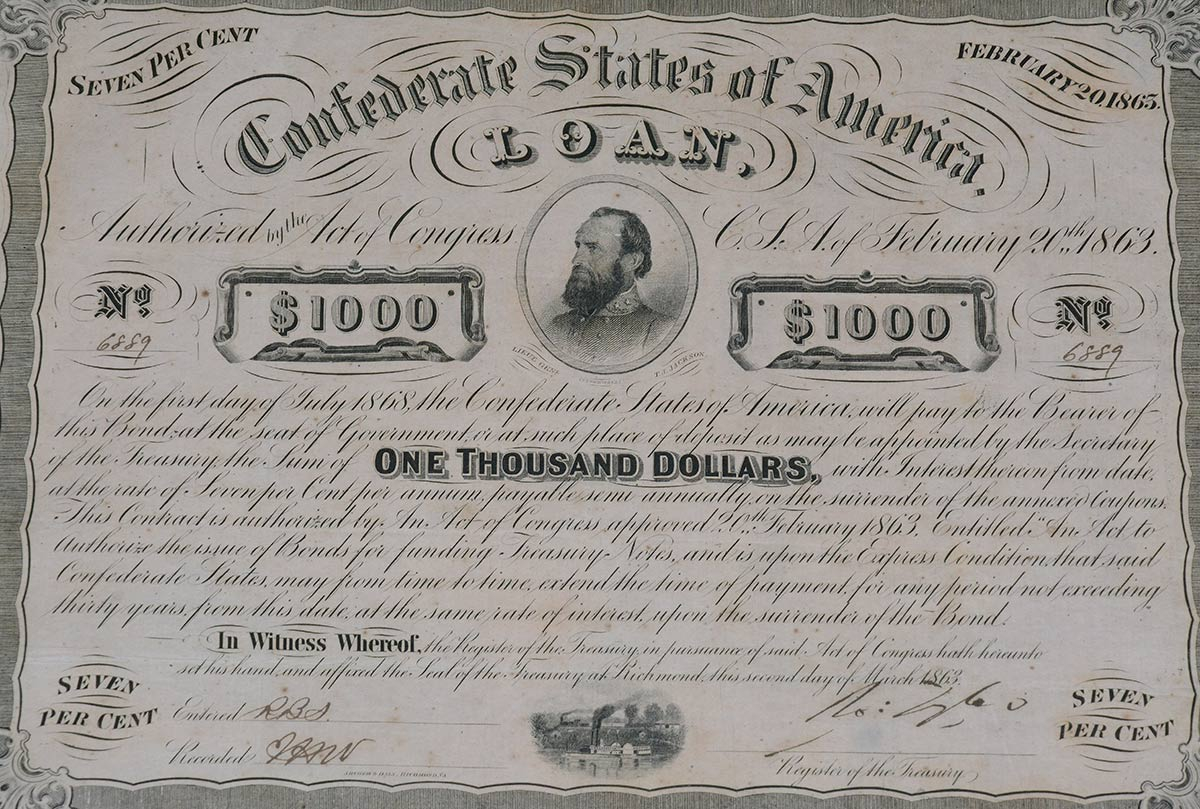 SEVEN PER CENT
FEBRUARY 20, 1863.
Confederate States of America.
LOAN,
Authorized by the Act of Congress C.S.A. of February 20th 1863.
No
6889
$1000
LIEUT. GENL. T.J. JACKSON
$1000
No
6889
On the first day of July 1868, the Confederate States of America, will pay to the Bearer of
this Bond, at the seat of Government, or at such place of deposit as may be appointed by the Secretary
of the Treasury, the Sum of ONE THOUSAND DOLLARS, with Interest thereon from date,
at the rate of Seven per Cent per annum, payable semi annually, on the surrender of the annexed Coupons.
This Contract is authorized by An Act of Congress, approved 20th February 1863, Entitled "An Act to
Authorize the issue of Bonds for funding Treasury Notes, and is upon the Express Condition, that said
Confederate States, may from time to time, extend the time of payment, for any period not exceeding
thirty years, from this date, at the same rate of interest, upon the surrender of the Bond.
In Witness Whereof, the Register of the Treasury, in pursuance of said Act of Congress hath hereunto
set his hand, and affixed the Seal of the Treasury at Richmond, this second day of March 1863.
SEVEN
PER CENT
Entered RBS
Recorded
RICHMOND, VA
Register of the Treasury
SEVEN
PER CENT